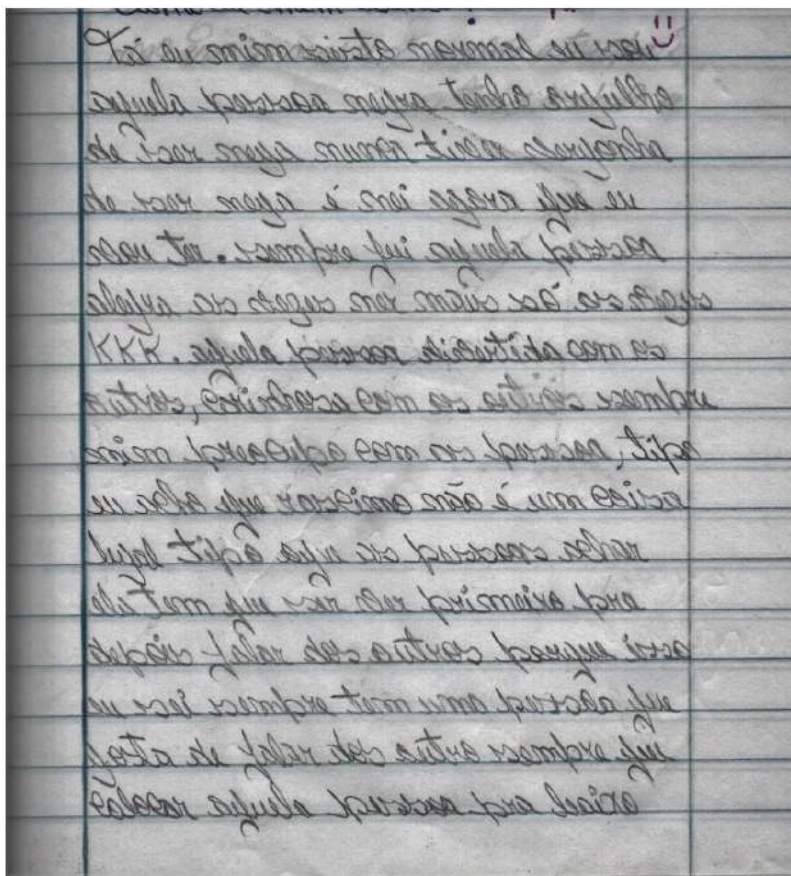 Tá eu mim normal eu sou
aquela pessoa negra tenho orgulho
de ser nega nunca tive vergonha
de ser nega é nei agora que eu
vou ter. sempre fui aquela pessoa
alegre as vezes né só as vezes
KKK. aquela pessoa divertida com os
outros, carinhosa com os outros sempre
mim preocupo com as pessoas, tipo
eu acho que racismo não é um coisa
legal tipo as pessoas
ele tem que se ver primeiro pra
depois falar dos outros porque isso
eu sei sempre tem uma pessoa que
gosta de falar dos outros sempre fui
aquela pessoa pra baixo